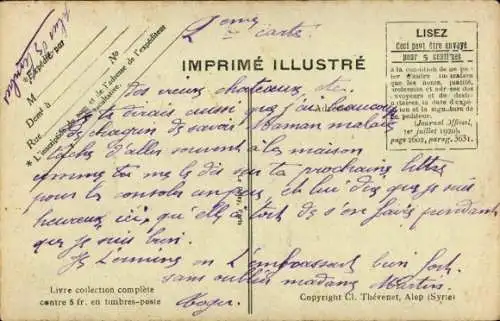 2eme carte
des vieux chateaux, etc.
je te dirais aussi que j'ai beaucoup
de chagrin de savoir Maman malade
tache d'aller souvent à la maison
comme tu me le dis sur ta prochaine lettre
pour la consoler un peu, et lui dire que je suis
heureux ici, qu'elle a tort de s'en faire pendant
que je suis bien.
Je termine en t'embrassant bien fort
sans oublier madame Martin.
Roger.
IMPRIMÉ ILLUSTRÉ
LISEZ
Ceci peut être envoyé
pour 5 centimes
à la condition de ne por-
ter d'autre inscription
que les noms, qualité,
adresses et numéros
des envoyeurs et des
destinataires, la date d'expé-
dition et la signature de
l'expéditeur.
Journal Officiel,
1er juillet 1920,
page 2602, parag. 3631.
Expédié par
M
Demt à
Rue
No
Livre collection complète
contre 5 fr. en timbres-poste
Copyright Cl. Thévenet, Alep (Syrie)